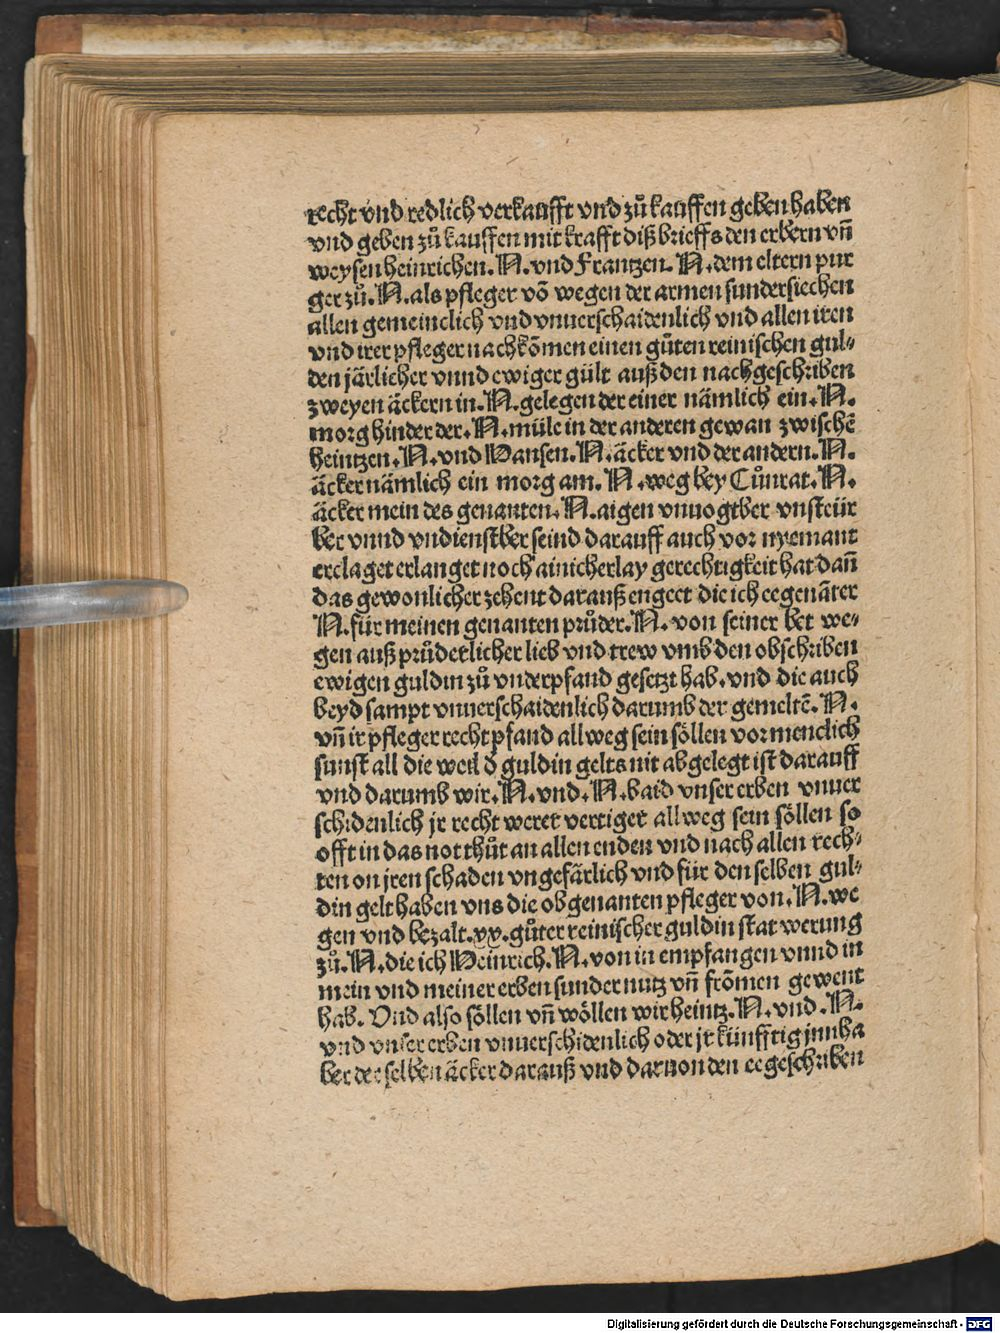 recht vnd redlich verkaufft vnd zů kauffen geben haben
vnd geben zů kauffen mit krafft diß brieffs den erbern vñ
weysen heinrichen. N. vnd Frantzen. N. dem eltern pur
ger zů. N. als pfleger võ wegen der armen sundersiechen
allen gemeinclich vnd vnuerschaidenlich vnd allen iren
vnd irer pfleger nachkõmen einen gůten reinischen gul⸗
den järlicher vnnd ewiger gült auß den nachgeschriben
zweyen äckern in. N. gelegen der einer nämlich ein. N.
morg hinder der. N. müle in der anderen gewan zwischẽ
heintzen. N. vnd Hansen. N. äcker vnd der andern. N.
äcker nämlich ein morg am. N. weg bey Cůnrat. N.
äcker mein des genanten. N. aigen vnuogtber vnsteür
ber vnnd vndienstber seind darauff auch vor nyemant
erclaget erlanget noch ainicherlay gerechtigkeit hat dañ
das gewonlicher zehent darauß engeet die ich eegenãter
N. für meinen genanten průder. N. von seiner bet we⸗
gen auß průderlicher lieb vnd trew vmb den obschriben
ewigen guldin zů vnderpfand gesetzt hab. vnd die auch
beyd sampt vnuerschaidenlich darumb der gemeltẽ. N.
vñ ir pfleger recht pfand allweg sein söllen vor menclich
sunst all die weil d̕ guldin gelts nit abgelegt ist darauff
vnd darumb wir. N. vnd. N. baid vnser erben vnuer
schidenlich jr recht weret vertiger allweg sein söllen so
offt in das not thůt an allen enden vnd nach allen rech⸗
ten on jren schaden vngefärlich vnd für den selben gul⸗
din gelt haben vns die obgenanten pfleger von. N. we
gen vnd bezalt. xx. gůter reinischer guldin stat werung
zů. N. die ich Heinrich. N. von in empfangen vnnd in
mein vnd meiner erben sunder nutz vñ frõmen gewent
hab. Vnd also söllen vñ wöllen wir heintz. N. vnd. N.
vnd vnser erben vnuerschidenlich oder jr künfftig jnnha
ber der selben äcker darauß vnd daruon den eegeschriben
Digitalisierung gefördert durch die Deutsche Forschungsgemeinschaft - DFG